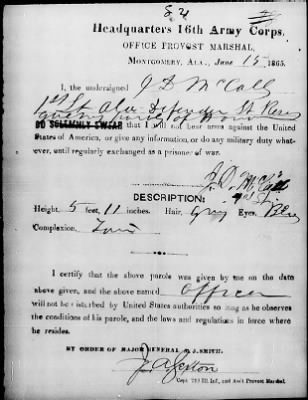 Headquarters 16th Army Corps,
OFFICE PROVOST MARSHAL,
MONTGOMERY, ALA., June 15 1865.
I, the undersigned J D McCall
1st Lt Ala
DO SOLEMNLY SWEAR that I will not bear arms against the United
States of America, or give any information, or do any military duty whatever,
until regularly exchanged as a prisoner of war.
J. D. McCall
DESCRIPTION:
Height, 5 feet, 11 inches. Hair, Gray Eyes,
Complexion,
I certify that the above parole was given by me on the date
above given, and the above named Officer
will not be disturbed by United States authorities so long as he observes
the conditions of his parole, and the laws and regulations in force where
he resides.
BY ORDER OF MAJOR GENERAL A. J. SMITH.
J. A. Sexton
Capt. 72d Ill. Inf., and Ass't Provost Marshal.